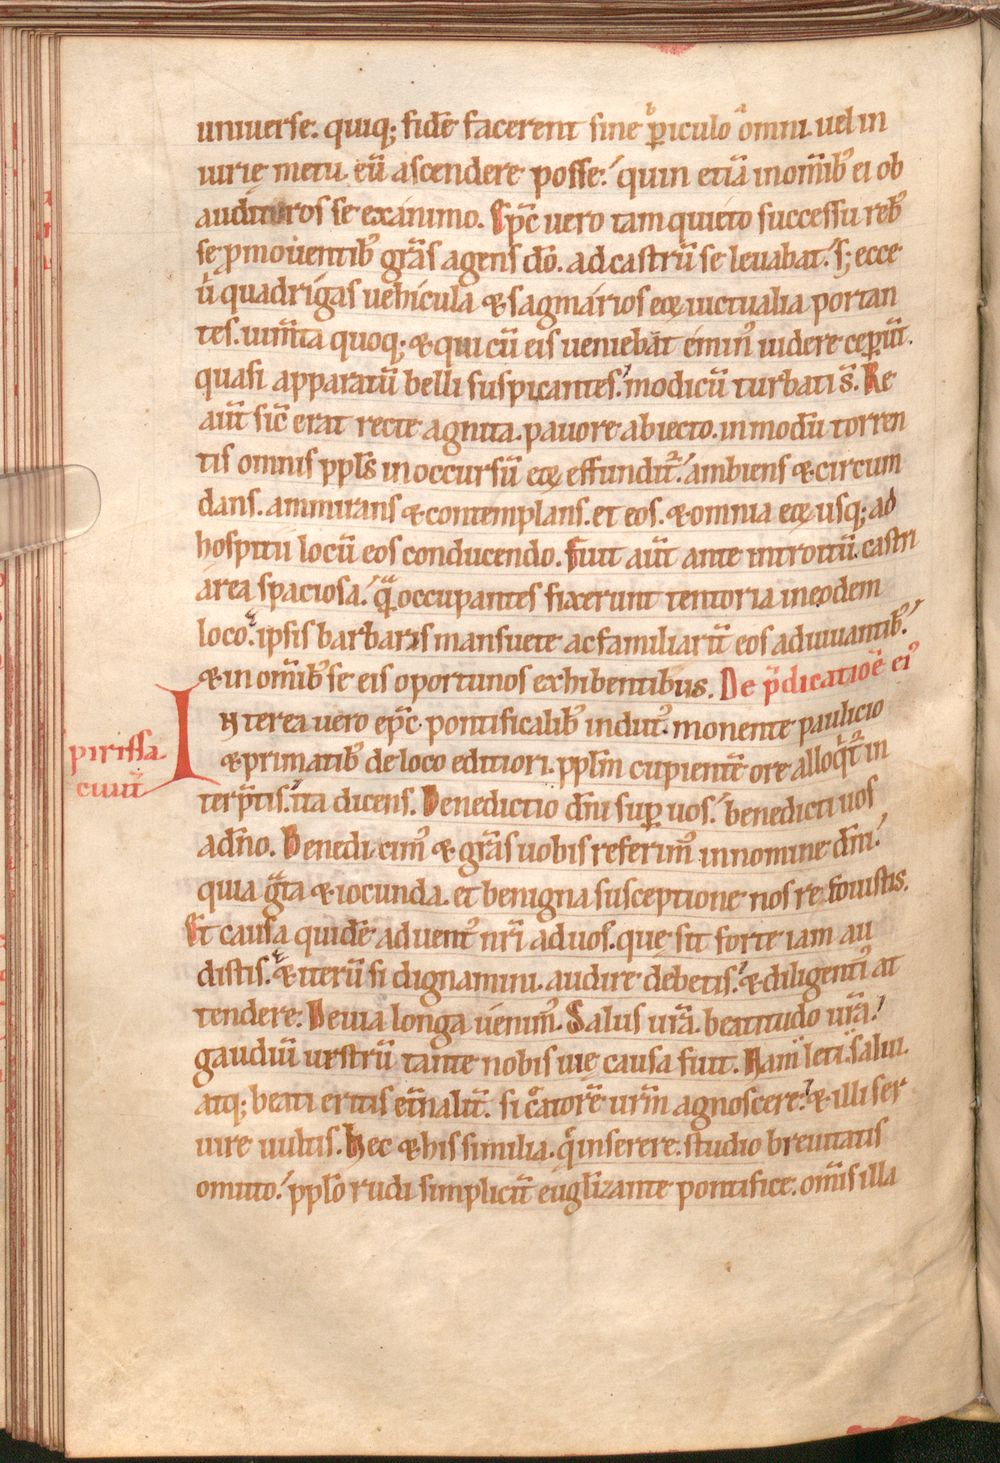 uniuerse. quiq; fidē facerent sine ꝑiculo omni. uel in
iurię metu. eū ascendere posse. quin etiā in om̄ib; ei ob
audituros se exanimo. Ep̄c uero tam quieto successu reb;
se ꝓmouentib; grās agens dō. ad castrū se leuabat. s; ecce
ū quadrigas uehicula & sagmarios eoꝝ uictualia portan
tes. ium̄ta quoq; & qui cū eis ueniebāt emin᷒ uidere ceper̄t.
quasi apparatū belli suspicantes. modicū turbati s̄. Re
aūt sic̄ erat recte agnita. pauore abiecto. in modū torren
tis omnis pp̄ls in occursū eoꝝ effundit᷑. ambiens & circum
dans. ammirans & contemplans. et eos. & omnia eoꝝ usq; ad
hospitii locū eos conducendo. Fuit aūt ante introitū castri
area spaciosa. quā occupantes fixerunt tentoria in eodem
loco. ipsis barbaris mansuete ac familiarit̄ eos adiuuantib;
& in om̄ib; se eis oportunos exhibentibus. De p̄dicatiōe ei᷒
Interea uero ep̄c. pontificalib; indut᷒. monente paulicio
pirissa
ciuit̄
& primatib; de loco editiori. pplm̄ cupientē ore alloqͥt᷑ in
terp̄tis. ita dicens. Benedictio dn̄i suꝑ uos. benedicti uos
a dn̄o. Benedicim᷒ & grās uobis referim᷒ in nomine dn̄i.
quia gͣta & iocunda. et benigna susceptione nos refouistis.
Et causa quidē aduent᷒ nr̄i ad uos. quę sit forte iam au
distis. & iterū si dignamini. audire debetis. & diligenti᷒ at
tendere. De uia longa uenim᷒. Salus ur̄a. beatitudo ur̄a.
gaudiū uestrū tante nobis uię causa fuit. Nam leti. salui.
atq; beati eritis et̄nalit̄. si c̄atorē ur̄m agnoscere. & illi ser
uire uultis. Hec & his similia. q̄ inserere. studio breuitatis
omitto. pplo rudi simplicit̄ euglizante pontifice. om̄is illa